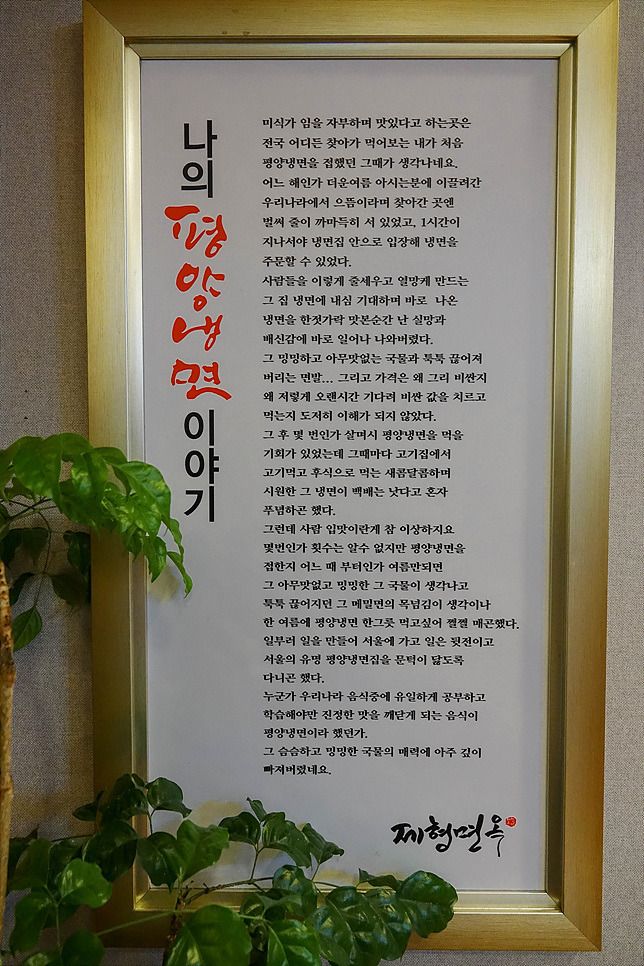 나의 평양냉면 이야기
미식가 임을 자부하며 맛있다고 하는곳은
전국 어디든 찾아가 먹어보는 내가 처음
평양냉면을 접했던 그때가 생각나네요.
어느 해인가 더운여름 아시는분에 이끌려간
우리나라에서 으뜸이라며 찾아간 곳엔
벌써 줄이 까마득히 서 있었고, 1시간이
지나서야 냉면집 안으로 입장해 냉면을
주문할 수 있었다.
사람들을 이렇게 줄세우고 열망케 만드는
그 집 냉면에 내심 기대하며 바로 나온
냉면을 한젓가락 맛본순간 난 실망과
배신감에 바로 일어나 나와버렸다.
그 밍밍하고 아무맛없는 국물과 툭툭 끊어져
버리는 면발... 그리고 가격은 왜 그리 비싼지
왜 저렇게 오랜시간 기다려 비싼 값을 치르고
먹는지 도저히 이해가 되지 않았다.
그 후 몇 번인가 살며시 평양냉면을 먹을
기회가 있었는데 그때마다 고기집에서
고기먹고 후식으로 먹는 새콤달콤하며
시원한 그 냉면이 백배는 낫다고 혼자
푸념하곤 했다.
그런데 사람 입맛이란게 참 이상하지요
몇번인가 횟수는 알수 없지만 평양냉면을
접한지 어느 때 부터인가 여름만되면
그 아무맛없고 밍밍한 그 국물이 생각나고
툭툭 끊어지던 그 메밀면의 목넘김이 생각이나
한 여름에 평양냉면 한그릇 먹고싶어 쩔쩔 매곤했다.
일부러 일을 만들어 서울에 가고 일은 뒷전이고
서울의 유명 평양냉면집을 문턱이 닳도록
다니곤 했다.
누군가 우리나라 음식중에 유일하게 공부하고
학습해야만 진정한 맛을 깨닫게 되는 음식이
평양냉면이라 했던가.
그 슴슴하고 밍밍한 국물의 매력에 아주 깊이
빠져버렸네요.
제형면옥